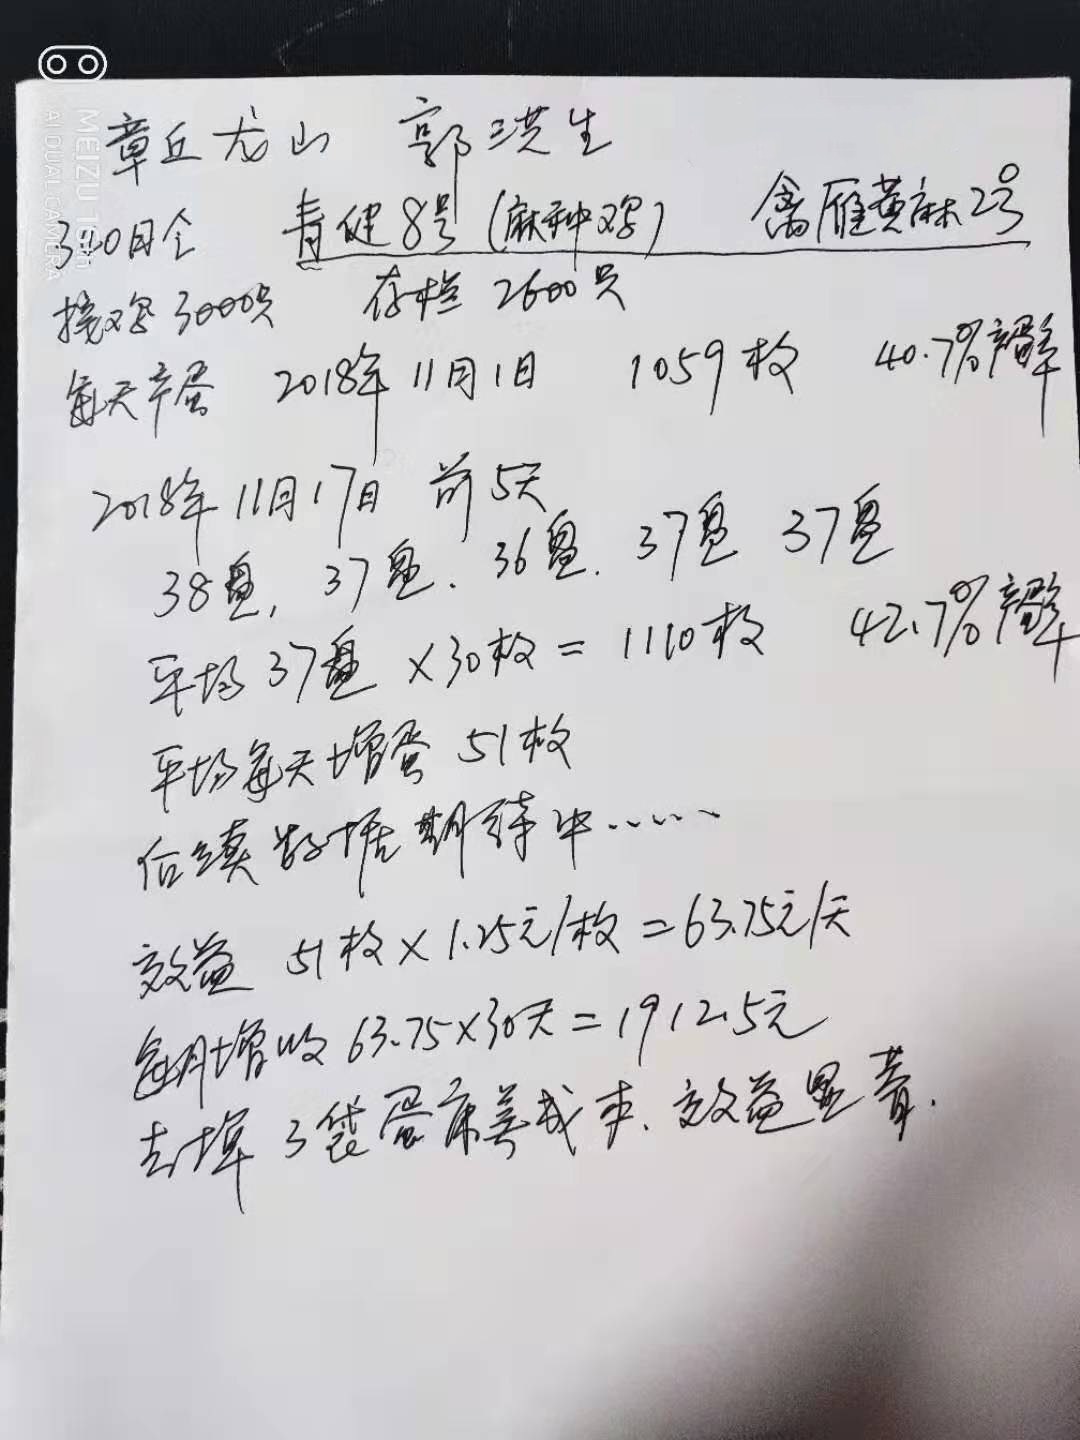 章丘龙山 郭洪生
320日令 青健8号(麻种鸡) 禽雁黄麻2号
接鸡3000只 存栏2600只
每天产蛋 2018年11月1日 1059枚 40.7%产蛋率
2018年11月17日 前5天
38盘, 37盘. 36盘. 37盘 37盘
平均37盘×30枚=1110枚 42.7%产蛋率
平均每天增蛋51枚
后续数据期待中......
效益 51枚×1.25元/枚=63.75元/天
每月增收63.75×30天=1912.5元
去掉3袋蛋康美成本.效益显著.
MEIZU 16th
AI DUAL CAMERA